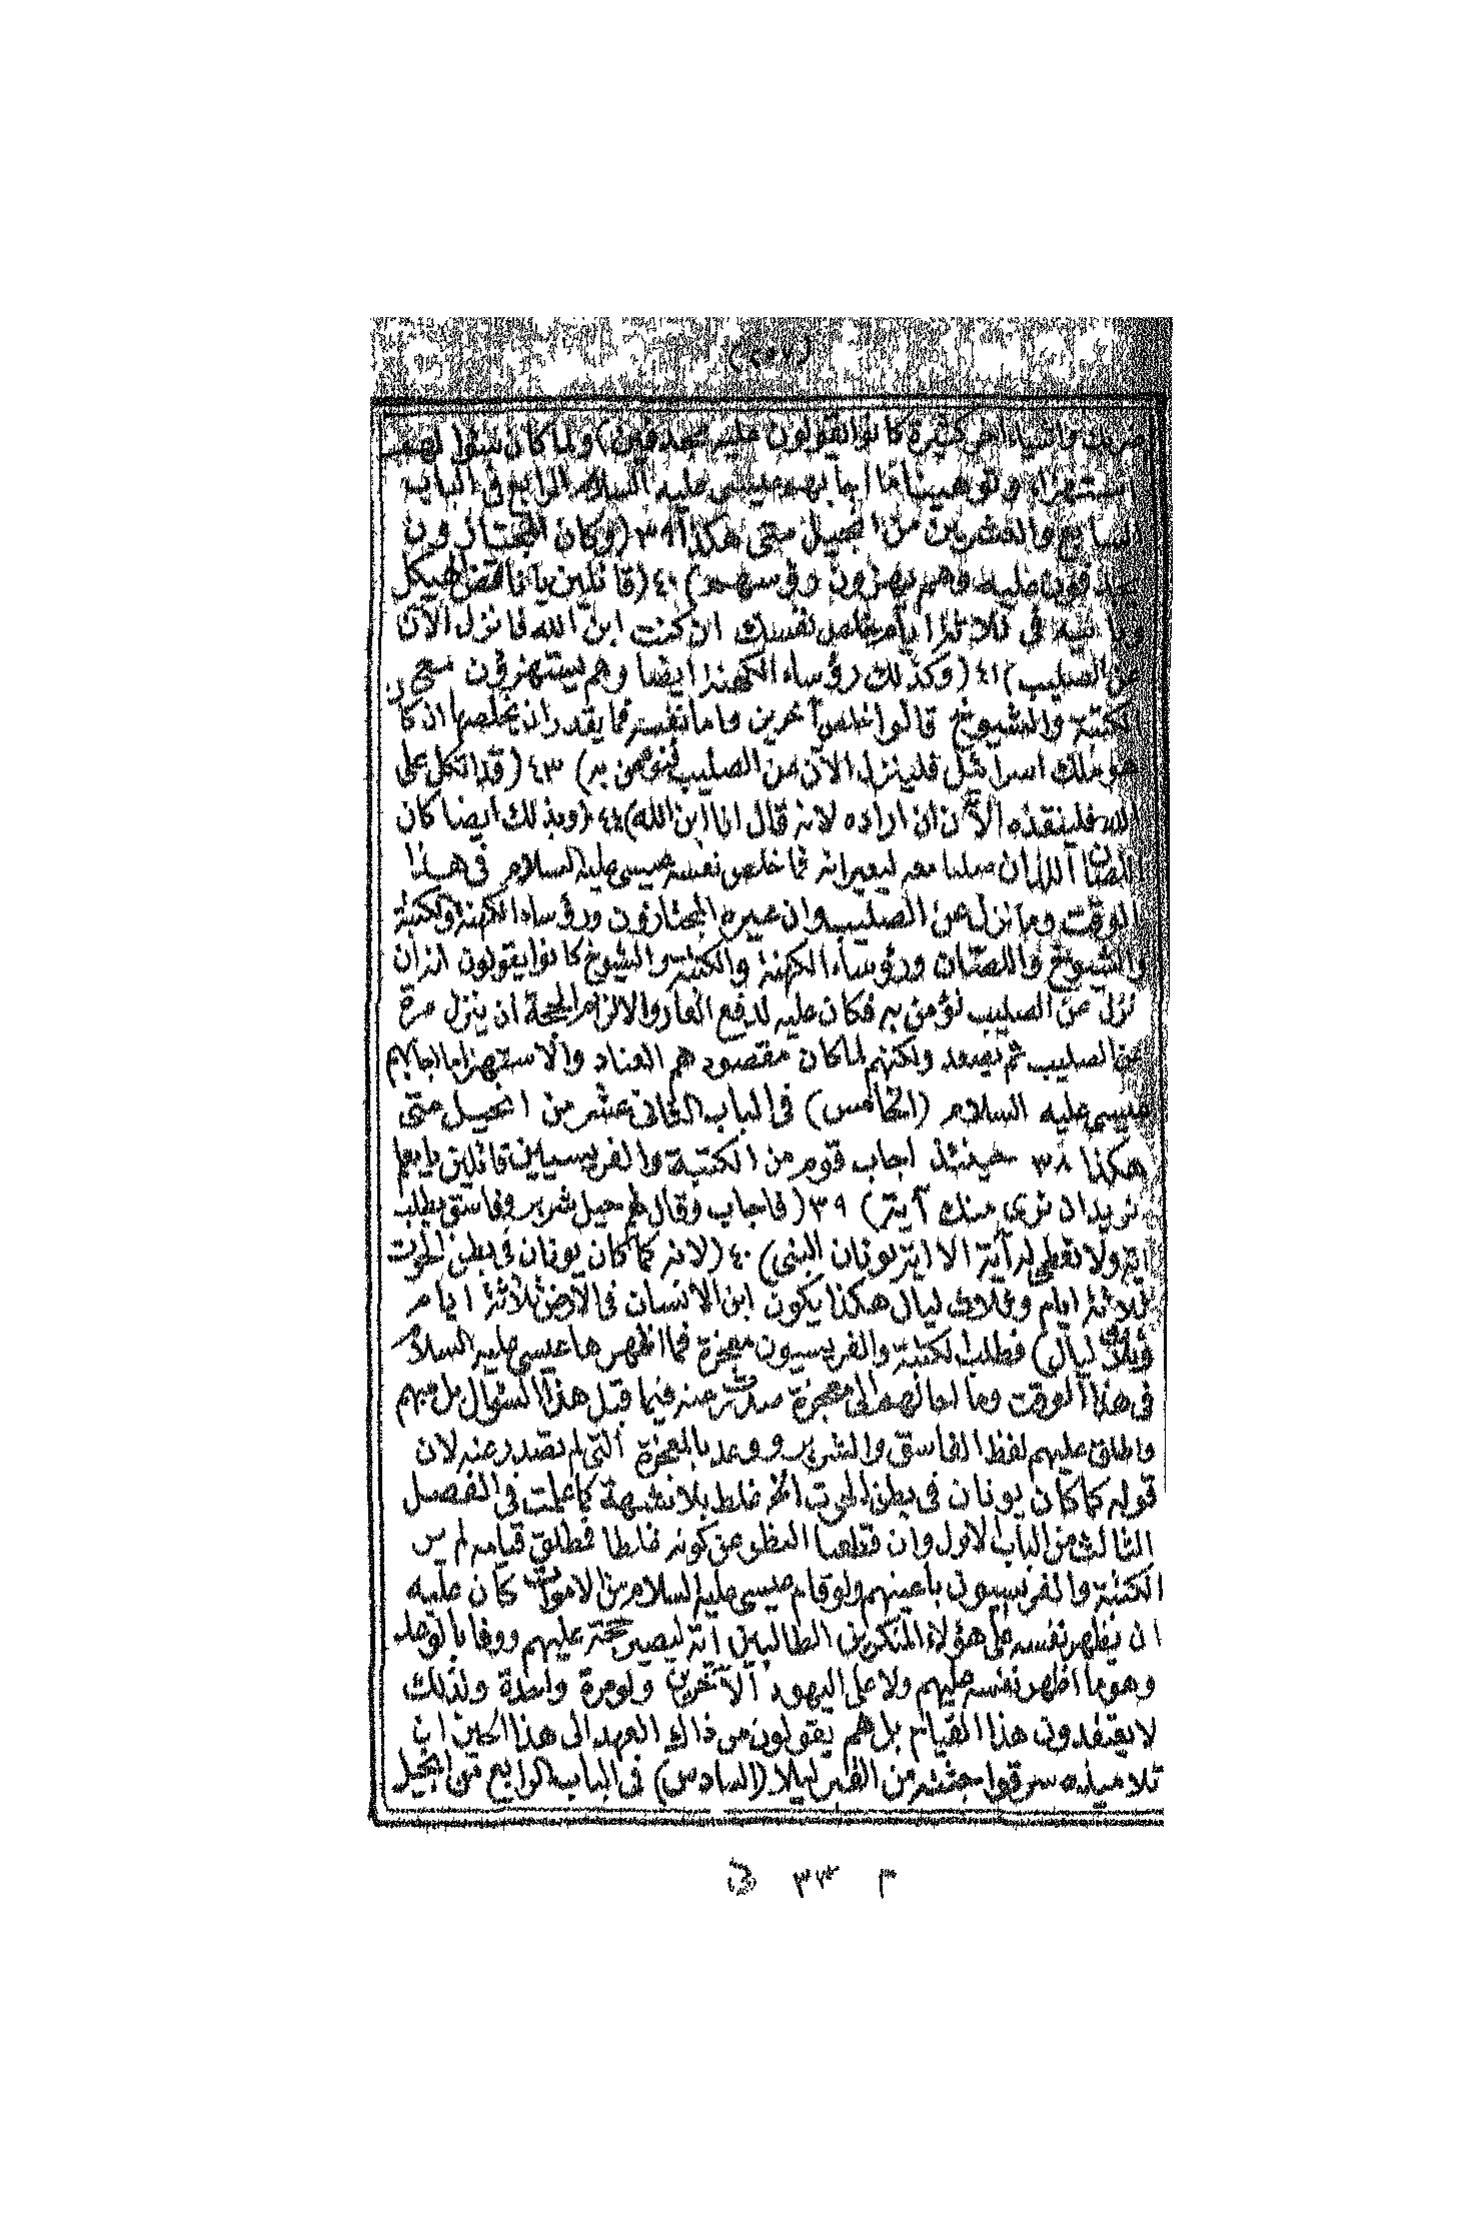 (٢٥٧)
ضربك واشياء اخر كثيرة كانوا يقولون عليه مجدفين) ولما كان سؤالهم
استهزاء وتوهينا ما اجابهم عيسى عليه السلام الرابع فى الباب
السابع والعشرين من انجيل متى هكذا ٣٩ (وكان المجتازون
يجدفون عليه وهم يهزون روسهم) ٤٠ (قائلين يا ناقض الهيكل
وبانيه فى ثلاثة ايام خلص نفسك ان كنت ابن الله فانزل الآن
عن الصليب) ٤١ (وكذلك رؤساء الكهنة ايضا وهم يستهزؤن مع
الكتبة والشيوخ قالوا خلص آخرين واما نفسه فما يقدر ان يخلصها ان كان
هو ملك اسرائيل فلينزل الآن عن الصليب لنؤمن به) ٤٣ (قد اتكل على
الله فلينقذه الآن ان اراده لانه قال انا ابن الله) ٤٤ (وبذلك ايضا كان
اللصان اللذان صلبا معه ليعيرانه فما خلص نفسه عيسى عليه السلام فى هذا
الوقت وما نزل عن الصليب وان عيره المجتازون ورؤساء الكهنة والكتبة
والشيوخ واللصان ورؤساء الكهنة والكتبة والشيوخ كانوا يقولون انه ان
نزل عن الصليب نؤمن به فكان عليه لدفع العار والالزام الحجة ان ينزل مرة
عن الصليب ثم يصعد ولكنهم لما كان مقصودهم العناد والاستهزاء ما اجابهم
عيسى عليه السلام (الخامس) فى الباب الثانى عشر من انجيل متى
هكذا ٣٨ حينئذ اجاب قوم من الكتبة والفريسيين قائلين يا معلم
نريد ان نرى منك آية) ٣٩ (فاجاب وقال لهم جيل شرير وفاسق يطلب
اية ولا تعطى له آية الا اية يونان النبى) ٤٠ (لانه كما كان يونان فى بطن الحوت
ثلاثة ايام وثلاث ليال هكذا يكون ابن الانسان فى الارض ثلاثة ايام
وثلاث ليال) فطلب الكتبة والفريسيون معجزة فما اظهرها عيسى عليه السلام
فى هذا الوقت وما احالهم الى معجزة صدرت عنه فيما قبل هذا السؤال بل سبهم
واطلق عليهم لفظ الفاسق والشرير ووعد بالمعجزة التى لم تصدر عنه لان
قوله كما كان يونان فى بطن الحوت الخ غلط بلا شبهة كما علمت فى الفصل
الثالث من الباب الاول وان قطعنا النظر عن كونه غلطا فمطلق قيامه لم ير
الكتبة والفريسيون باعينهم ولو قام عيسى عليه السلام من الاموات كان عليه
ان يظهر نفسه على هؤلاء المنكرين الطالبين آية ليصير حجة عليهم ووفا بالوعد
وهو ما اظهر نفسه عليهم ولا على اليهود الآخرين ولو مرة واحدة ولذلك
لا يعتقدون هذا القيام بل هم يقولون من ذلك العهد الى هذا الحين ان
تلاميذه سرقوا جثته من القبر ليلا (السادس) فى الباب الرابع من انجيل
م ٣٣ نى